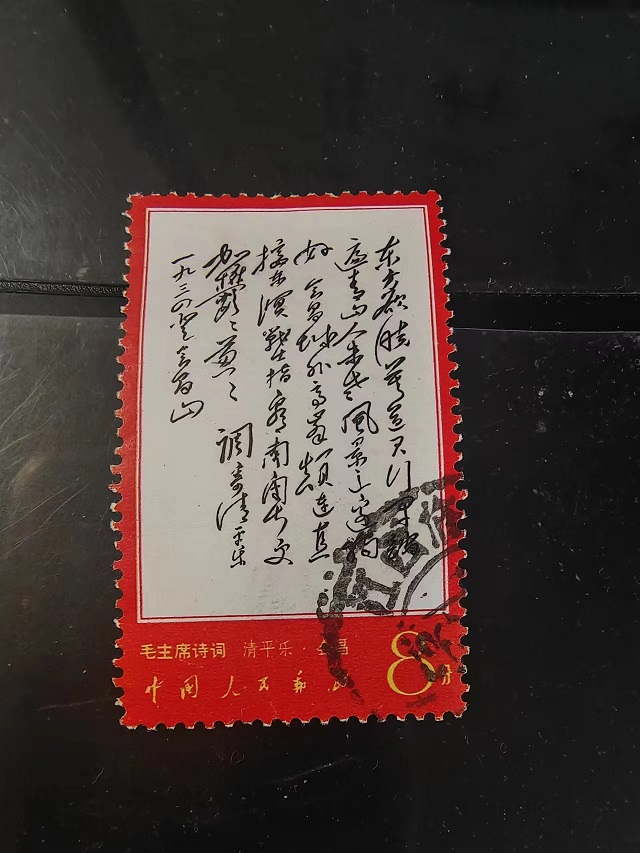 东方欲晓莫道君行早踏
遍青山人未老风景这边独
好会昌城外高峰颠连直
接东溟战士指看南粤更
加郁々葱々 调寄清平乐
一九三四登会昌山
毛主席诗词 清平乐·会昌
中国人民邮政 8分